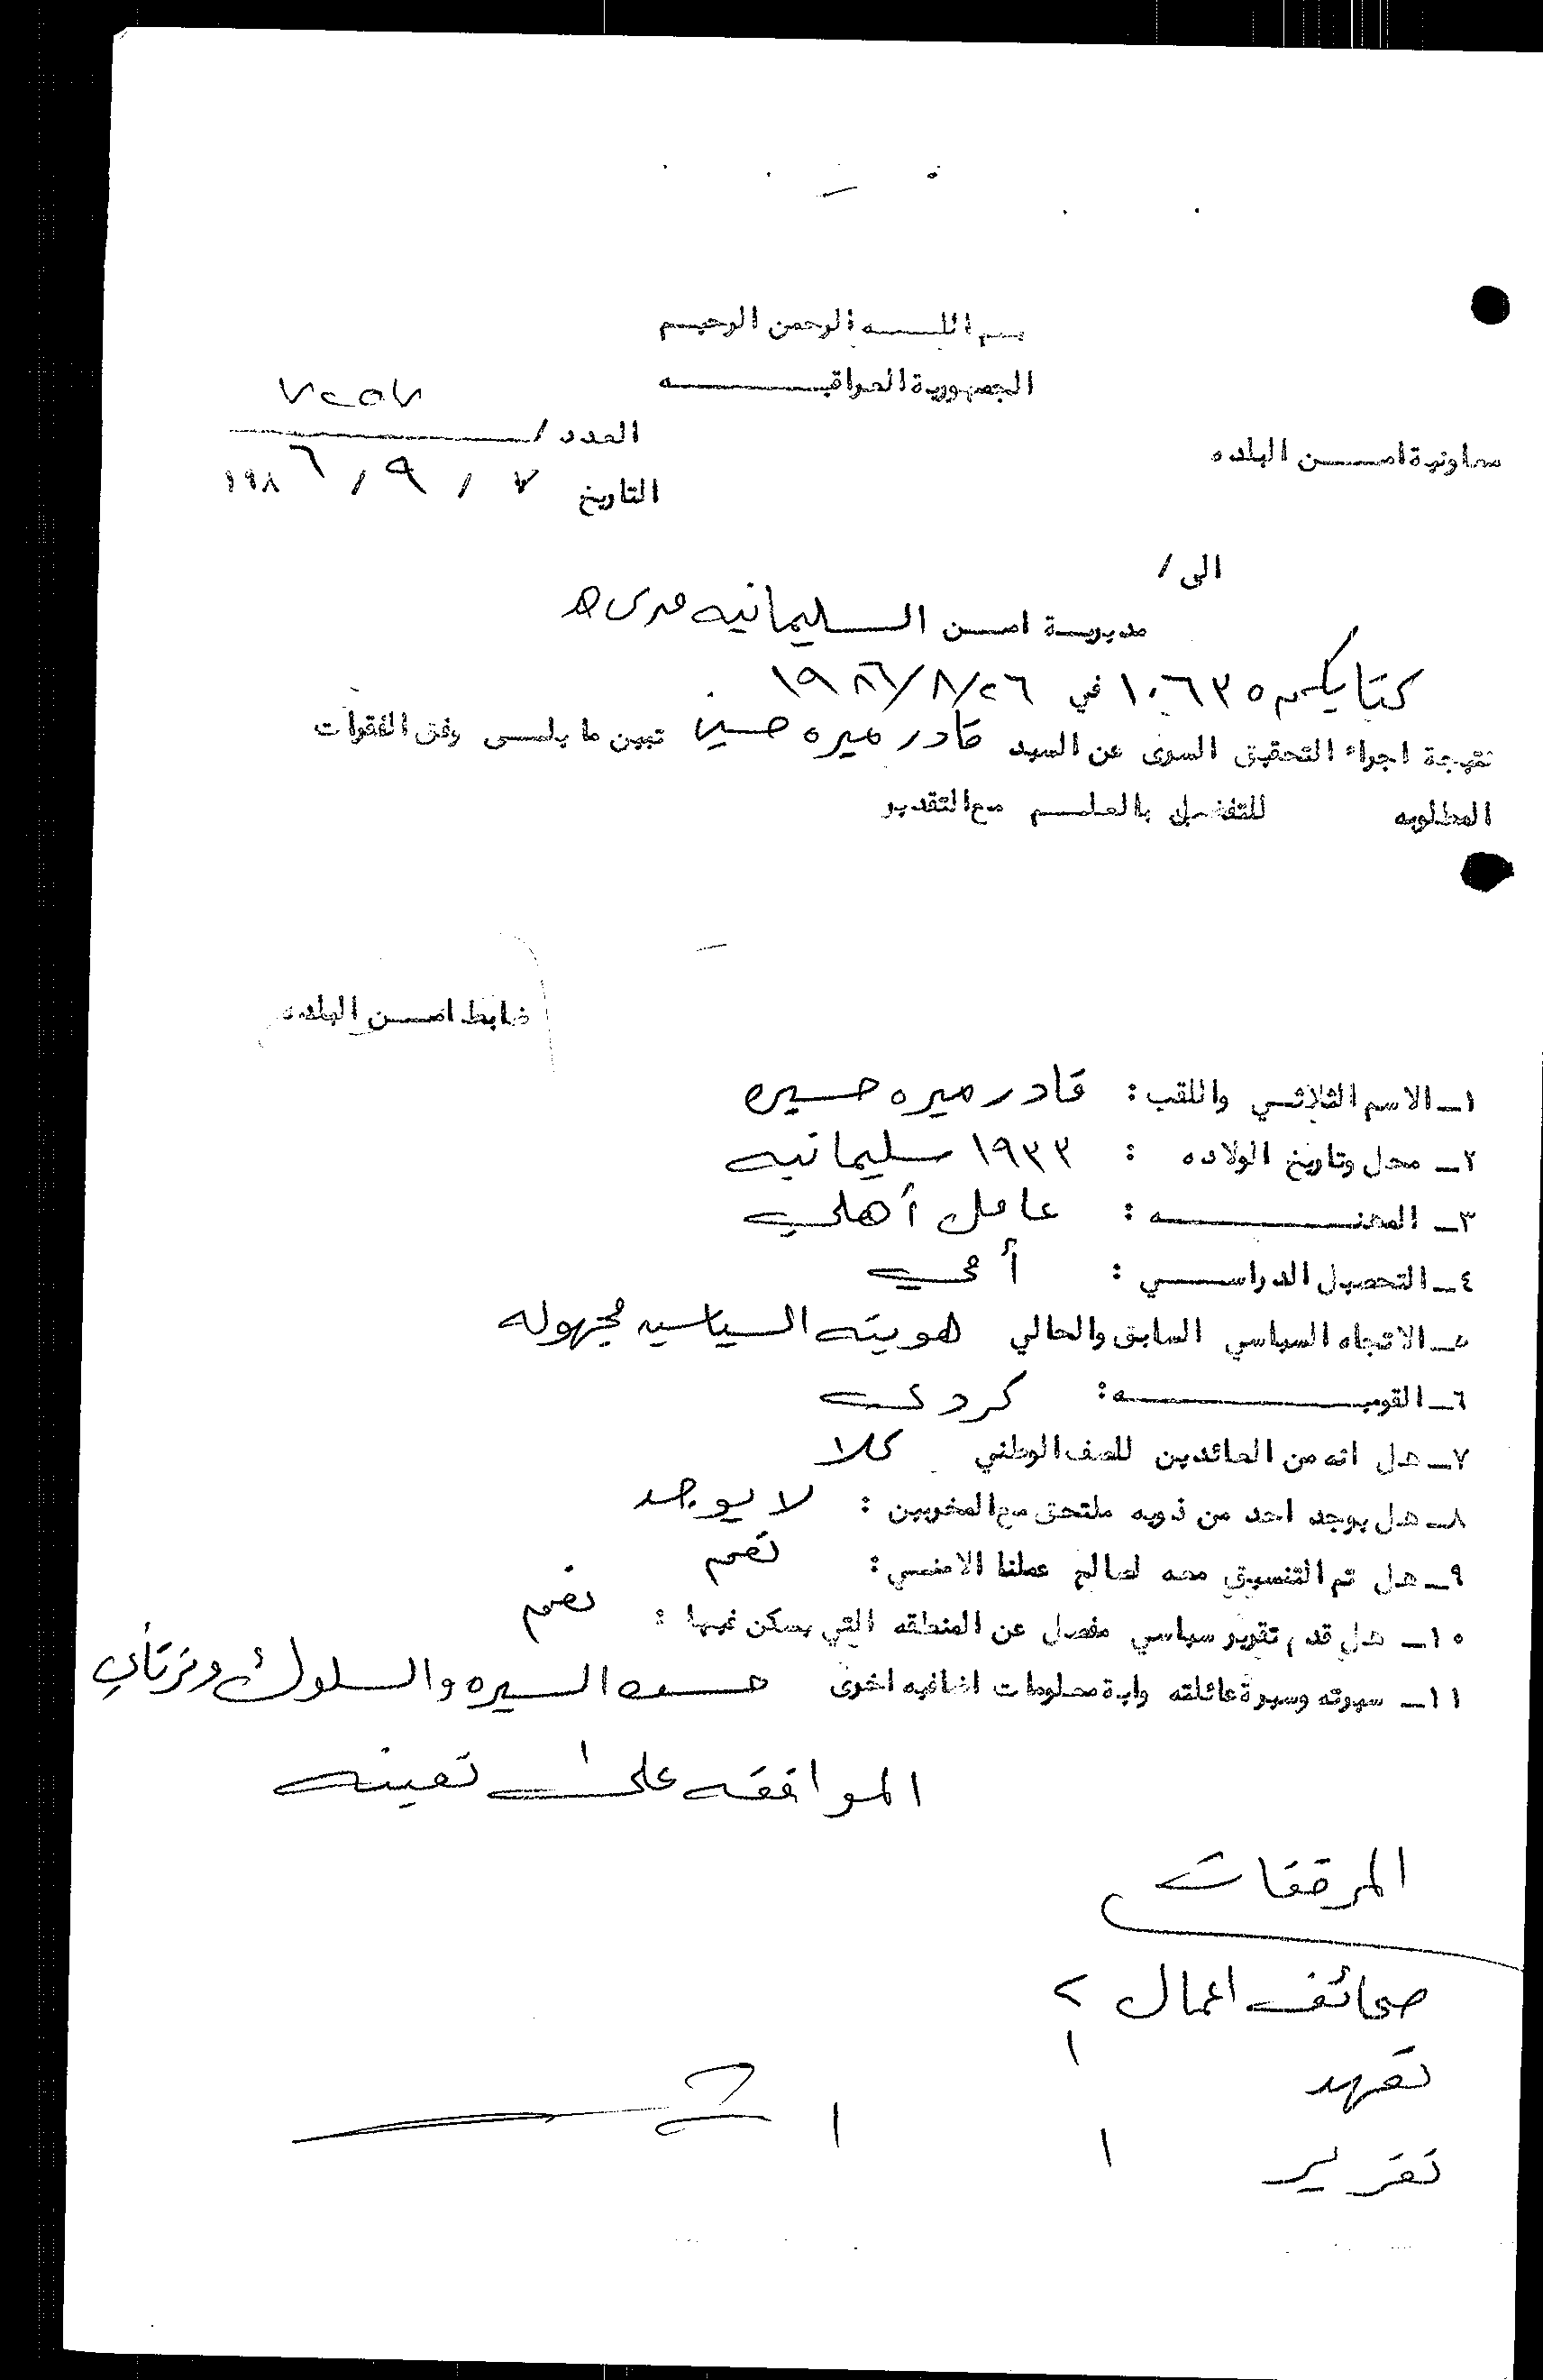 بسم اللــه الرحمن الرحيم
الجمهورية العراقيــــه
معاونية امــن البلده
العدد / ٧٢٥٧
التاريخ ٧ / ٩ / ١٩٨٦
الى /
مديرية امـن السليمانيه
كتابكم ١٠٦٣٥ في ١٩٨٦/٨/٢٦
نتيجة اجراء التحقيق السرى عن السيد قادر ميره حسين تبين ما يلـي وفق الفقرات
المطلوبه للتفضل بالعلـم مع التقدير
ضابط امـن البلده
١ـ الاسم الثلاثـي واللقب : قادر ميره حسين
٢ـ محل وتاريخ الولاده : ١٩٣٣ سليمانيه
٣ـ المهنــــه : عامل أهلي
٤ـ التحصيل الدراسـي : أمي
٥ـ الاتجاه السياسي السابق والحالي هويته السياسيه مجهوله
٦ـ القوميــــه : كردي
٧ـ هل انه من العائدين للصف الوطني كلا
٨ـ هل يوجد احد من ذويه ملتحق مع المخربين : لا يوجد
٩ـ هل تم التنسيق معه لصالح عملنا الامنـي : نعم
١٠ـ هل قدم تقرير سياسي مفصل عن المنطقه التي يسكن فيها : نعم
١١ـ سيرته وسيرة عائلته واية معلومات اضافيه اخرى حسن السيره والسلوك ونرتأي
الموافقه على تعينه
المرفقات
صحائف اعمال ٢
تعهد ١
تقرير ١